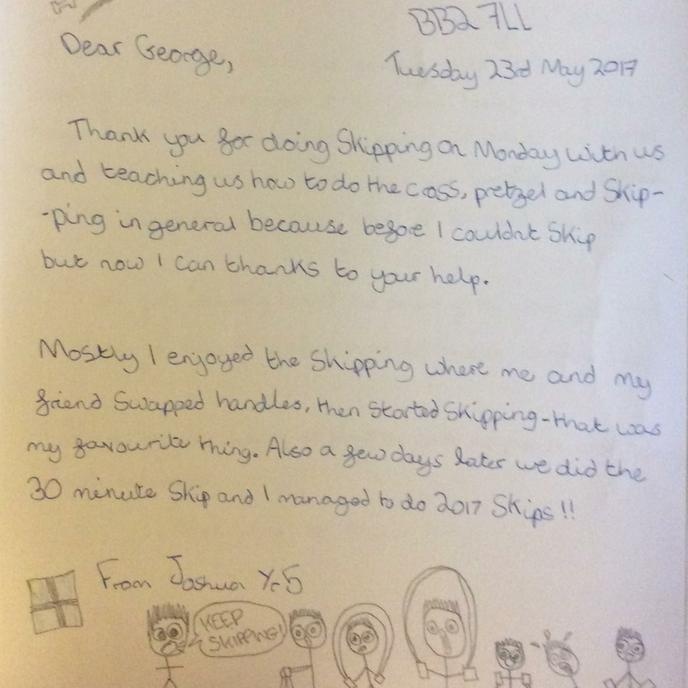 BB2 7LL
Dear George,
Tuesday 23rd May 2017
Thank you for doing Skipping on Monday with us
and teaching us how to do the cross, pretzel and Skip-
-ping in general because before I couldnt Skip
but now I can thanks to your help.
Mostly I enjoyed the Skipping where me and my
friend Swapped handles, then Started Skipping-that was
my favourite thing. Also a few days later we did the
30 minute Skip and I managed to do 2017 Skips!!
From Joshua Yr5
KEEP
SKIPPING!